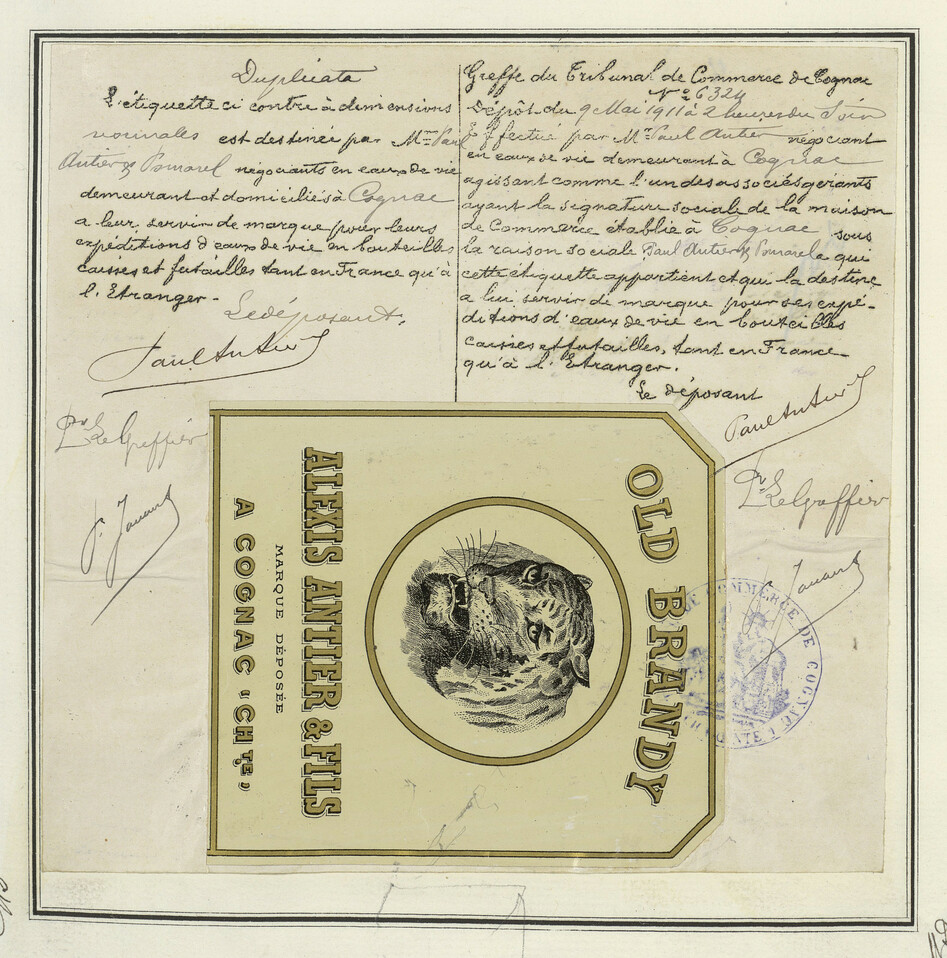 Duplicata
L'étiquette ci contre à dimensions
normales est destinée par M.rs Paul
Antier & Pomarel négociants en eaux de vie
demeurant et domiciliés à Cognac
a leur servir de marque pour leurs
expéditions d'eaux de vie en bouteilles
caisses et futailles tant en France qu'à
l'Etranger.
Le déposant,
Paul Antier
Pr Le Greffier
Greffe du Tribunal de Commerce de Cognac
No 6324
Dépôt du 9 Mai 1911 à 2 heures du Soir
Effectué par Mr Paul Antier négociant
en eaux de vie demeurant à Cognac
agissant comme l'un des associés gérants
ayant la signature sociale de la maison
de Commerce établie à Cognac sous
la raison sociale Paul Antier & Pomarel e qui
cette etiquette appartient et qui la destine
a lui servir de marque pour ses expé-
ditions d'eaux de vie en bouteilles
caisses et futailles, tant en France
qu'à l'Etranger.
Le déposant
Paul Antier
Pr Le Greffier
OLD BRANDY
ALEXIS ANTIER & FILS
MARQUE DÉPOSÉE
A COGNAC "CHTE"
DE COMMERCE DE COGNAC